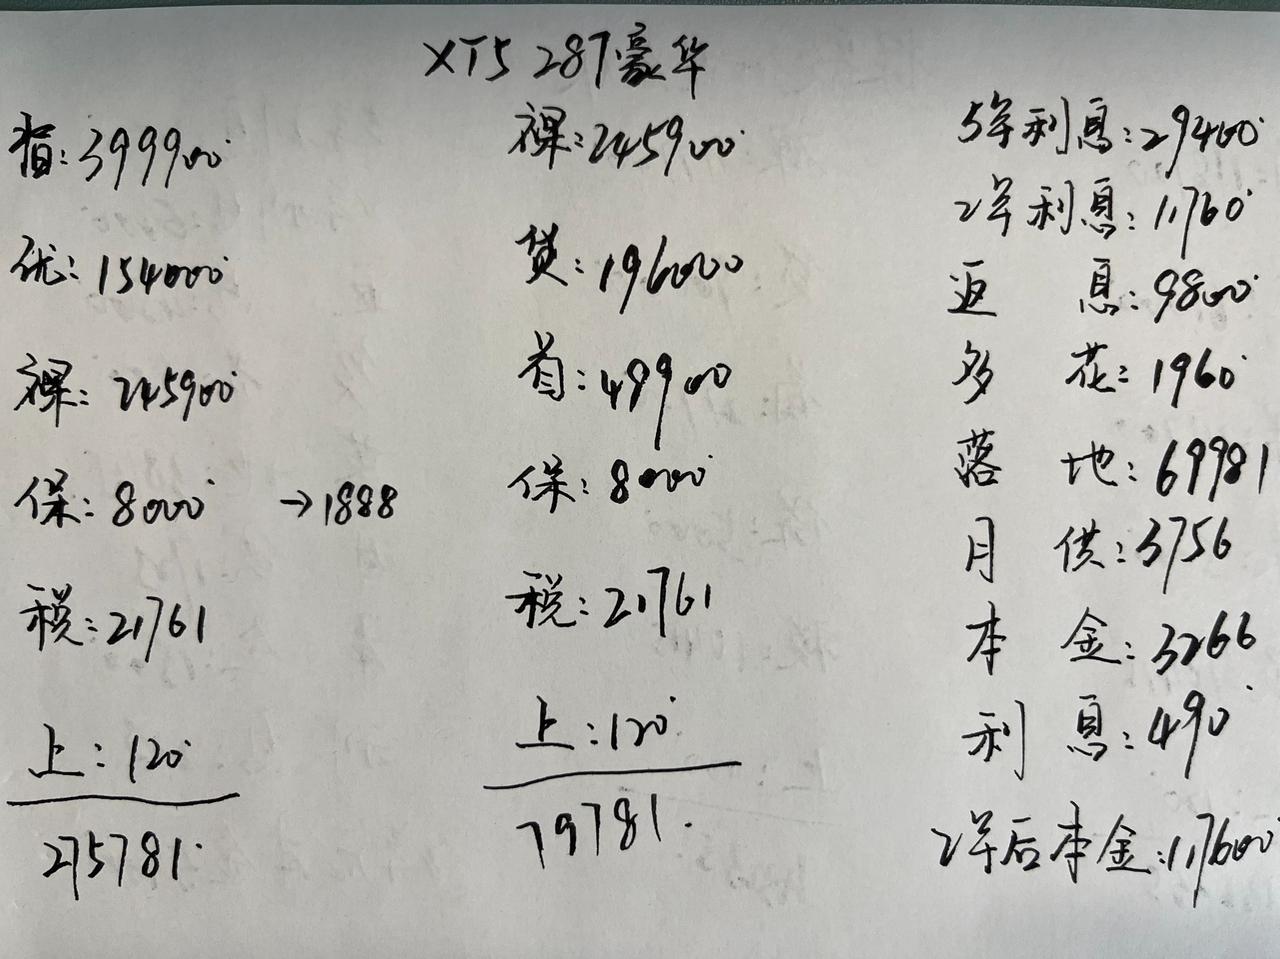 XT5 287豪华
指:399900
优:154000
裸:245900
保:8000 →1888
税:21761
上:120
275781.
裸:245900
贷:196000
首:49900
保:8000
税:21761
上:120
79781.
5年利息:29400
2年利息:11760
返 息:9800
多 花:1960
落 地:69981
月 供:3756
本 金:3266
利 息:490
2年后本金:117600